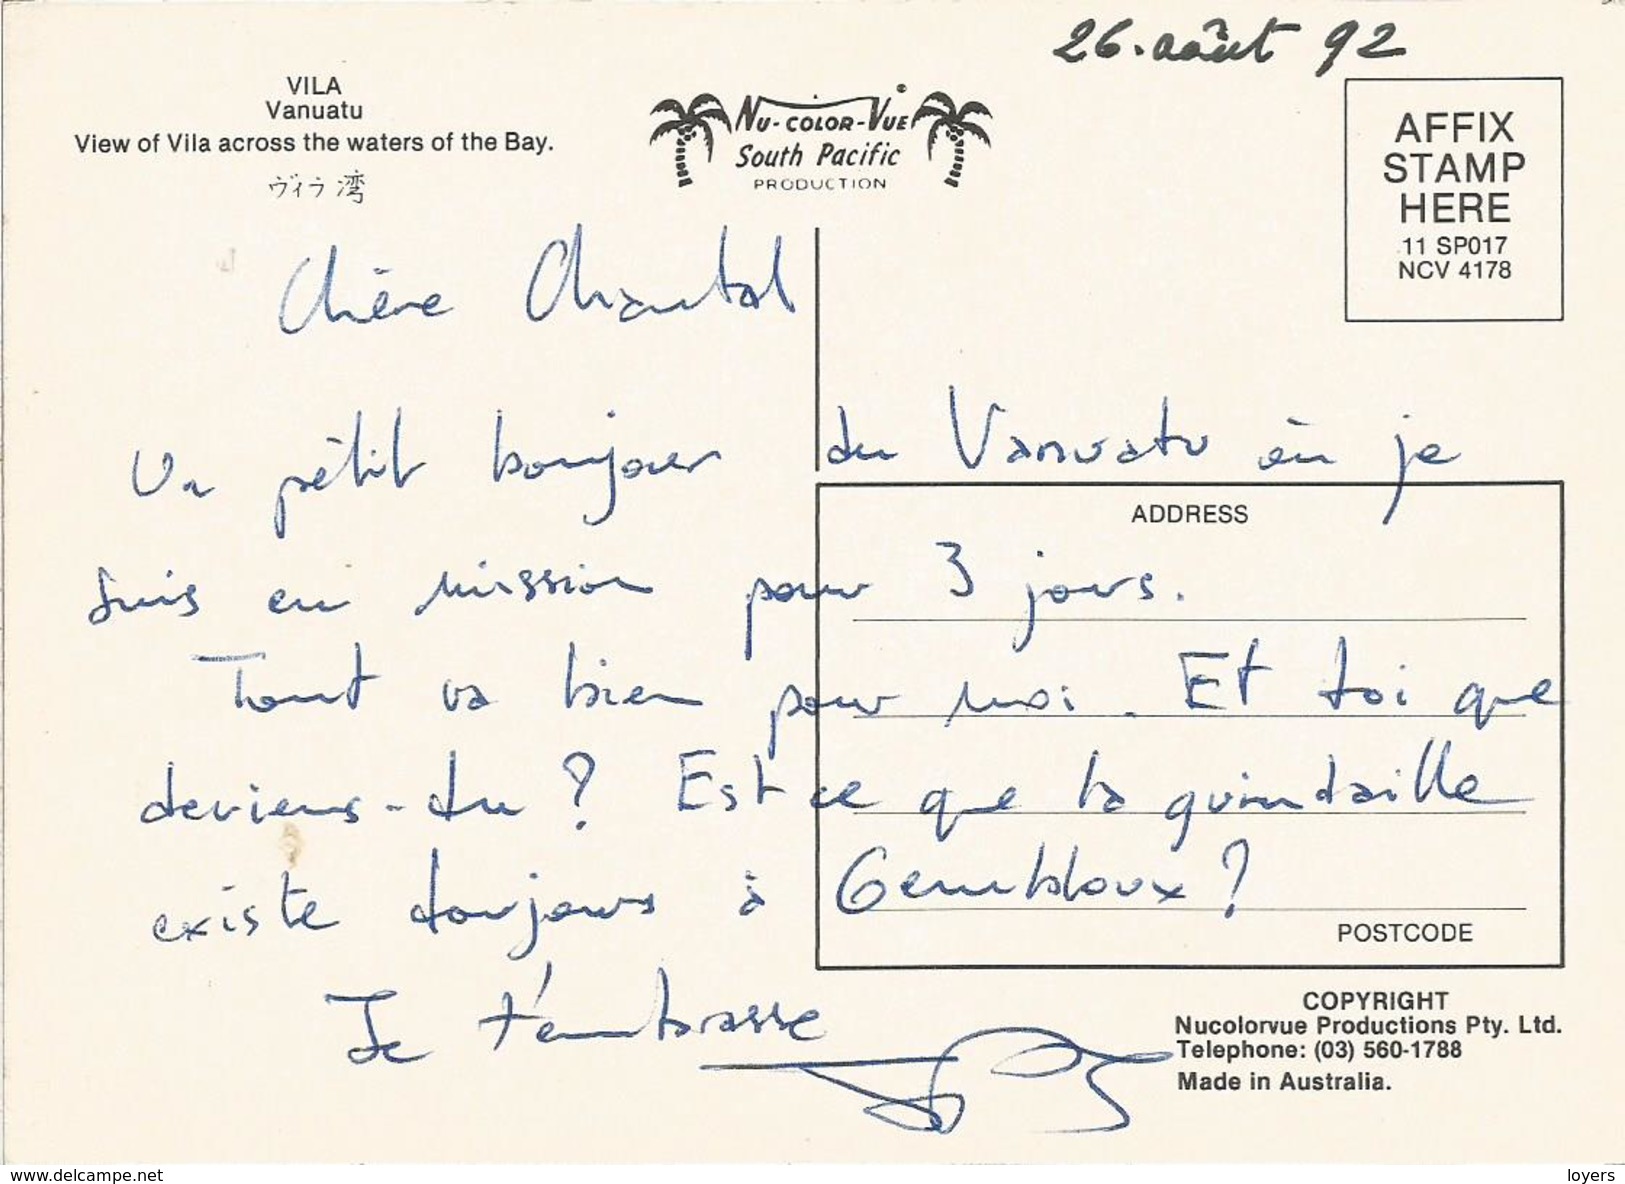 26. août 92
VILA
Vanuatu
View of Vila across the waters of the Bay.
ヴィラ湾
NU-COLOR-VUE
South Pacific
PRODUCTION
AFFIX
STAMP
HERE
11 SP017
NCV 4178
Chère Chantal
Un pétit bonjour du Vanuatu où je
suis en mission pour 3 jours.
Tout va bien pour moi. Et toi que
deviens-tu? Est ce que la guindaille
existe toujours à Gembloux?
Je t'embrasse
ADDRESS
POSTCODE
COPYRIGHT
Nucolorvue Productions Pty. Ltd.
Telephone: (03) 560-1788
Made in Australia.
www.delcampe.net
loyers